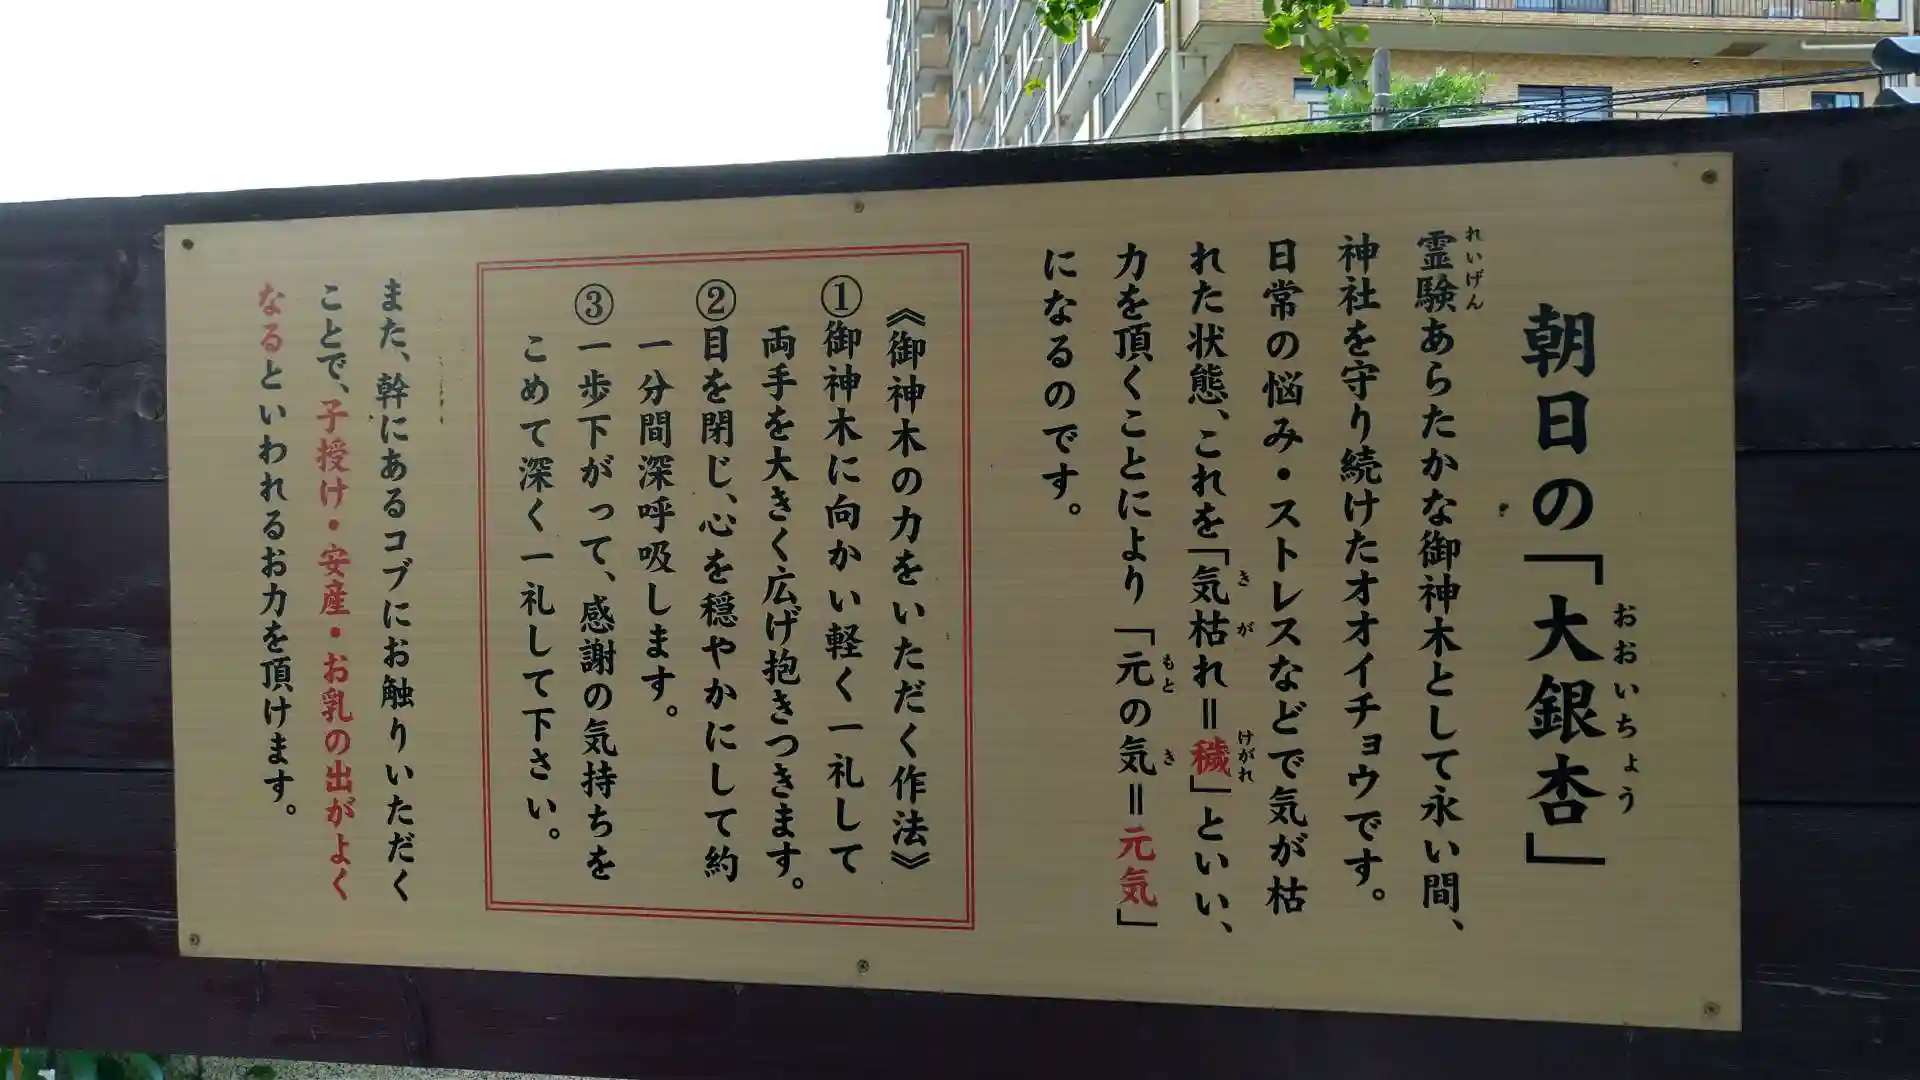 朝日の「大銀杏」
おおいちょう
霊験あらたかな御神木として永い間、
れいげん
神社を守り続けたオオイチョウです。
日常の悩み・ストレスなどで気が枯
れた状態、これを「気枯れ＝穢」といい、
きが
けがれ
力を頂くことにより「元の気＝元気」
もと
き
になるのです。
《御神木の力をいただく作法》
①御神木に向かい軽く一礼して
両手を大きく広げ抱きつきます。
②目を閉じ、心を穏やかにして約
一分間深呼吸します。
③一歩下がって、感謝の気持ちを
こめて深く一礼して下さい。
また、幹にあるコブにお触りいただく
ことで、子授け・安産・お乳の出がよく
なるといわれるお力を頂けます。